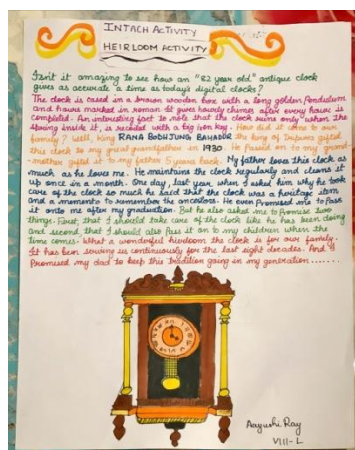 INTACH ACTIVITY
HEIRLOOM ACTIVITY
Isn't it amazing to see how an "82 year old" antique clock
gives as accurate a time as today's digital clocks?
The clock is cased in a brown wooden box with a long golden Pendulum
and hours marked in roman. It gives hourly chimes after every hour is
completed. An interesting fact to note that the clock runs only when the
spring inside it, is rewinded with a big iron key. How did it come to our
family? Well, King RANA BONJUNG BAHADUR the king of gifted
this clock to my great grandfather in 1930. He passed on to my grand
-mother gifted it to my father 5 years back. My father loves this clock as
much as he loves me. He maintains the clock regularly and cleans it
up once in a month. One day, last year, when I asked him why he took
care of the clock so much he said that the clock was a heritage item
and a memento to remember the ancestors. He even Promised me to Pass
it onto me after my graduation. But he also asked me to Promise two
things. First, that I should take care of the clock like he has been doing
and second, that I should also pass it on to my children when the
time comes. What a wonderful hierloom the clock is for our family.
It has been serving us continuously for the last eight decades. And I
Promised my dad to keep this tradition going in my generation.......
Aayushi Ray
VIII-L